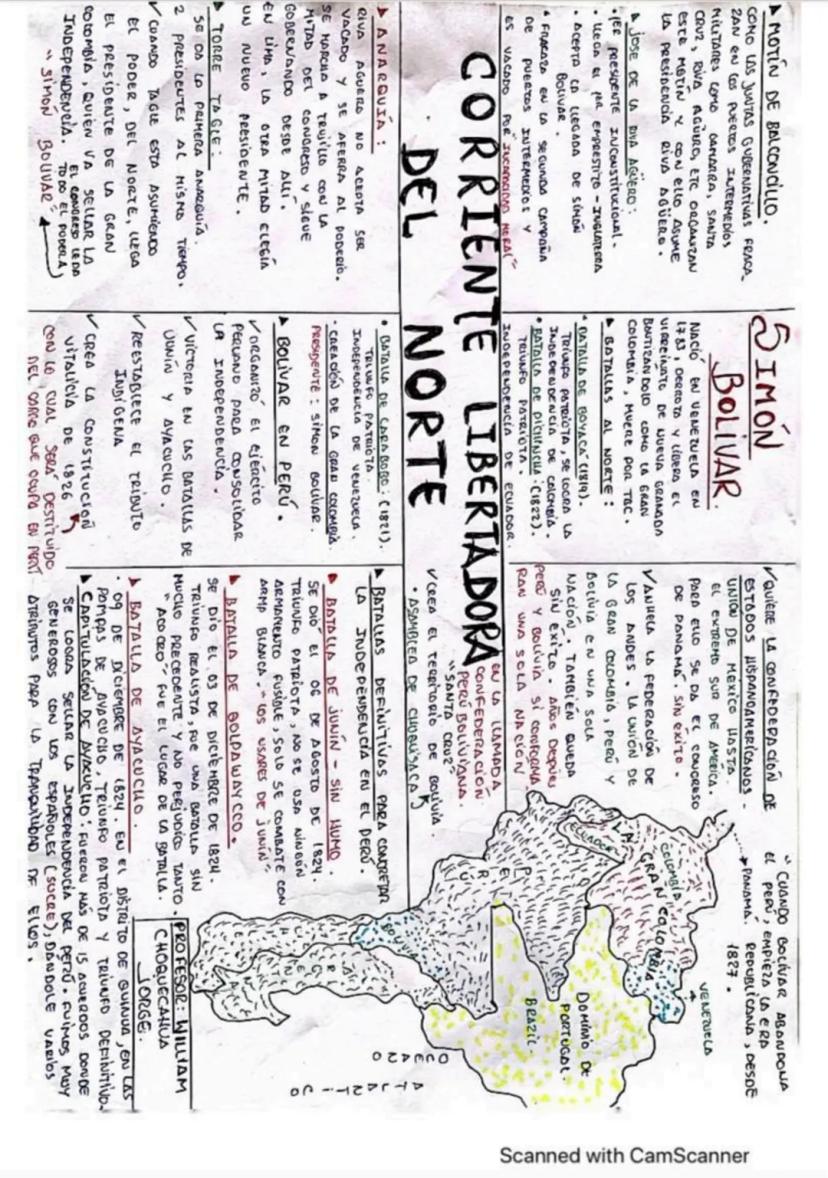 ▸ MOTÍN DE BALCONCILLO.
COMO LAS JUNTAS GUBERNATIVAS FRACA-
ZAN EN LOS PUERTOS INTERMEDIOS
MILITARES COMO GAMARRA, SANTA
CRUZ, RIVA AGÜERO, ETC ORGANIZAN
ESTE MOTIN Y CON ELLO ASUME
LA PRESIDENCIA RIVA AGÜERO.
▸ JOSE DE LA RIVA AGÜERO:
• 1ER PRESIDENTE INCONSTITUCIONAL.
• LLEGA EL 1ER EMPRESTITO - INGLATERRA
• ACEPTA LA LLEGADA DE SIMÓN
BOLIVAR.
• FRACAZA EN LA SEGUNDA CAMPAÑA
DE PUERTOS INTERMEDIOS Y
ES VACADO POR "INCAPACIDAD MORAL"
SIMÓN
BOLIVAR.
NACIÓ EN VENEZUELA EN
1783, DERROTA Y LIBERA EL
VIRREINATO DE NUEVA GRANADA
BAUTIZANDOLO COMO LA GRAN
COLOMBIA, MUERE POR TBC.
▸ BATALLAS AL NORTE:
• BATALLA DE BOYACÁ (1819).
TRIUNFO PATRIOTA, SE LOGRA LA
INDEPENDENCIA DE COLOMBIA.
• BATALLA DE PICHINCHA: (1822).
TRIUNFO PATRIOTA.
INDEPENDENCIA DE ECUADOR.
✓ QUIERE LA CONFEDERACIÓN DE
ESTADOS HISPANOAMERICANOS -
UNION DE MEXICO HASTA
EL EXTREMO SUR DE AMERICA.
PARA ELLO SE DA EL CONGRESO
DE PANAMÁ. SIN EXITO.
✓ ANHELA LA FEDERACIÓN DE
LOS ANDES. LA UNION DE
LA GRAN COLOMBIA, PERÚ Y
BOLIVIA EN UNA SOLA
NACIÓN. TAMBIÉN QUEDA
SIN EXITO. AÑOS DESPUES
PERÚ Y BOLIVIA SÍ CONFORMA
RAN UNA SOLA NACIÓN
EN LA LLAMADA
CONFEDERACIÓN
PERÚ BOLIVIANA.
"SANTA CRUZ"
✓ CREA EL TERRITORIO DE BOLIVIA.
• ASAMBLEA DE CHUQUISACA
"CUANDO BOLIVAR ABANDONA
EL PERÚ, EMPIEZA LA ERA
REPUBLICANA, DESDE
1827.
PANAMÁ.
VENEZUELA
COLOMBIA
LA GRAN COLOMBIA
ECUADOR
PERÚ
DOMINIO DE
PORTUGAL
BRAZIL
CORRIENTE LIBERTADORA
DEL NORTE
▸ ANARQUIA:
RIVA AGUERO NO ACEPTA SER
VACADO Y SE AFERRA AL PODERIO.
SE MARCHA A TRUJILLO CON LA
MITAD DEL CONGRESO Y SIGUE
GOBERNANDO DESDE ALLI.
EN LIMA, LA OTRA MITAD ELEGÍA
UN NUEVO PRESIDENTE.
▸ TORRE TAGLE:
SE DA LA PRIMERA ANARQUIA.
2 PRESIDENTES AL MISMO TIEMPO.
✓ CUANDO TAGLE ESTA ASUMIENDO
EL PODER, DEL NORTE, LLEGA
EL PRESIDENTE DE LA GRAN
COLOMBIA, QUIEN VA SELLAR LA
INDEPENDENCIA.
EL CONGRESO LE DA
TODO EL PODER A
"SIMON BOLIVAR"
• BATALLA DE CARABOBO: (1821).
TRIUNFO PATRIOTA.
INDEPENDENCIA DE VENEZUELA.
• CREACIÓN DE LA GRAN COLOMBIA
PRESIDENTE: SIMON BOLIVAR.
▸ BOLIVAR EN PERÚ.
✓ ORGANIZÓ EL EJÉRCITO
PERUANO PARA CONSOLIDAR
LA INDEPENDENCIA.
✓ VICTORIA EN LAS BATALLAS DE
JUNÍN Y AYACUCHO.
✓ REESTABLECE EL TRIBUTO
INDÍGENA
✓ CREA LA CONSTITUCIÓN
VITALICIA DE 1826
CON LO CUAL SERÁ DESTITUIDO
DEL CARGO QUE OCUPA EN PERÚ
▸ BATALLAS DEFINITIVAS PARA CONCRETAR
LA INDEPENDENCIA EN EL PERÚ.
▸ BATALLA DE JUNÍN - SIN HUMO.
SE DIÓ EL 06 DE AGOSTO DE 1824.
TRIUNFO PATRIOTA, NO SE USA NINGÚN
ARMAMENTO FUSIBLE, SOLO SE COMBATE CON
ARMA BLANCA. "LOS USARES DE JUNÍN"
▸ BATALLA DE GOLPAWAYCCO.
SE DIO EL 03 DE DICIEMBRE DE 1824.
TRIUNFO REALISTA, FUE UNA BATALLA SIN
MUCHO PRECEDENTE Y NO PERJUDICO TANTO.
"ACOCRO" FUE EL LUGAR DE LA BATALLA.
▸ BATALLA DE AYACUCHO.
• 09 DE DICIEMBRE DE 1824. EN EL DISTRITO DE QUINUA, EN LAS
PAMPAS DE AYACUCHO, TRIUNFO PATRIOTA Y TRIUNFO DEFINITIVO.
▸ CAPITULACIÓN DE AYACUCHO: FUERON MÁS DE 15 ACUERDOS DONDE
SE LOGRA SELLAR LA INDEPENDENCIA DEL PERÚ. FUIMOS MUY
GENEROSOS CON LOS ESPAÑOLES (SUCRE), DANDOLE VARIOS
ATRIBUTOS PARA LA TRANQUILIDAD DE ELLOS.
PROFESOR: WILLIAM
CHOQUECAHUA
JORGE.
Scanned with CamScanner